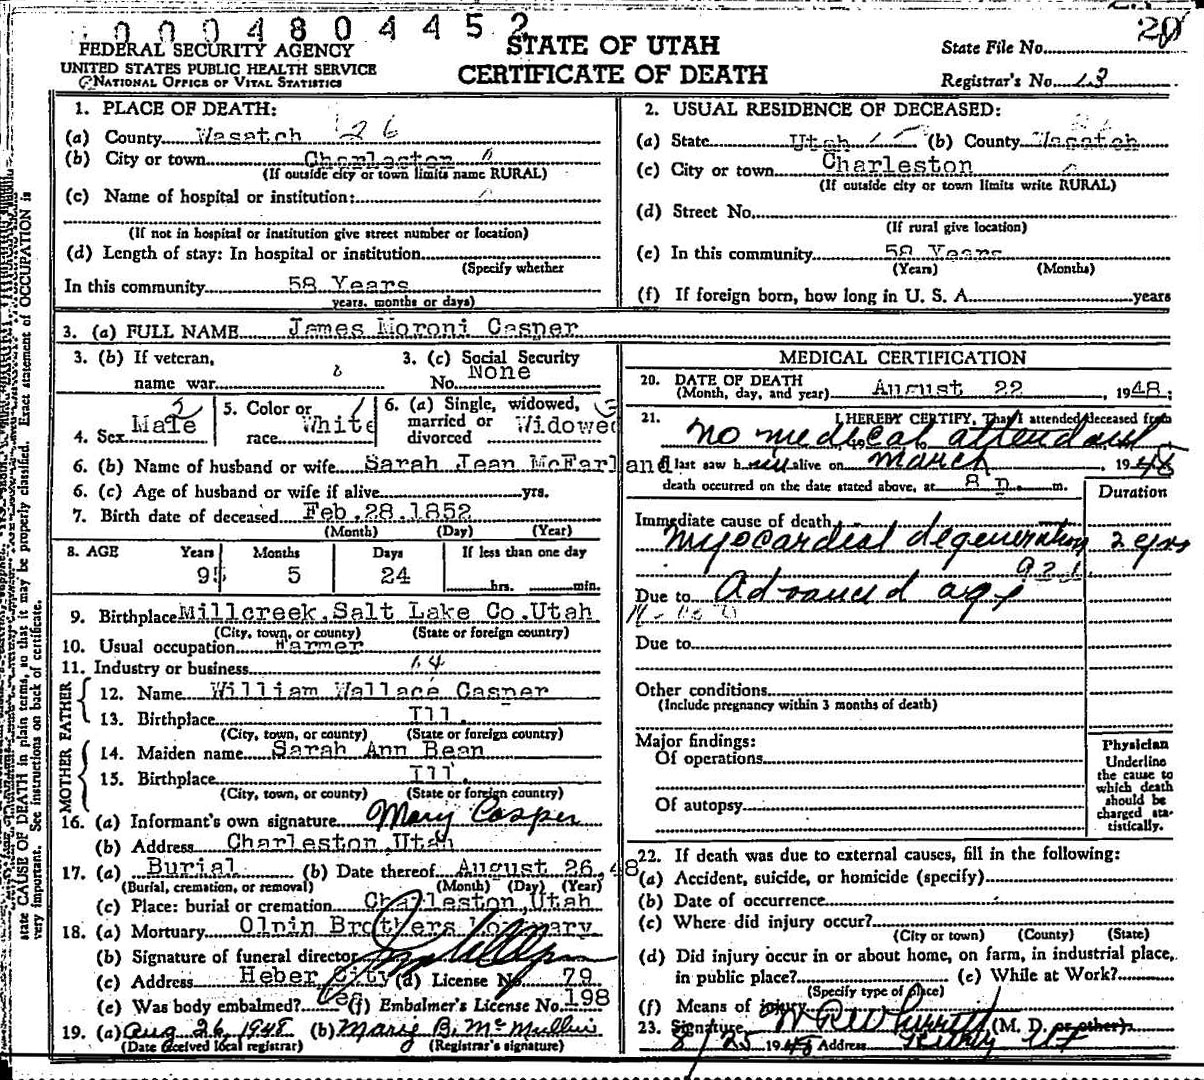 0004804452
20
FEDERAL SECURITY AGENCY
UNITED STATES PUBLIC HEALTH SERVICE
NATIONAL OFFICE OF VITAL STATISTICS
STATE OF UTAH
CERTIFICATE OF DEATH
State File No.
Registrar's No. 13
1. PLACE OF DEATH:
(a) County Wasatch 26
(b) City or town Charleston
(If outside city or town limits name RURAL)
(c) Name of hospital or institution:
(If not in hospital or institution give street number or location)
(d) Length of stay: In hospital or institution
(Specify whether
In this community 58 Years
years, months or days)
2. USUAL RESIDENCE OF DECEASED:
(a) State Utah (b) County Wasatch
(c) City or town Charleston
(If outside city or town limits write RURAL)
(d) Street No.
(If rural give location)
(e) In this community 58 Years
(Years) (Months)
(f) If foreign born, how long in U. S. A. years
3. (a) FULL NAME James Moroni Casper
3. (b) If veteran,
name war
3. (c) Social Security
No. None
4. Sex Male
5. Color or
race White
6. (a) Single, widowed,
married or
divorced Widowed
6. (b) Name of husband or wife Sarah Jean McFarland
6. (c) Age of husband or wife if alive yrs.
7. Birth date of deceased Feb.28.1852
(Month) (Day) (Year)
8. AGE Years Months Days If less than one day
95 5 24
hrs. min.
9. Birthplace Millcreek.Salt Lake Co.Utah
(City, town, or county) (State or foreign country)
10. Usual occupation Farmer
11. Industry or business 14
FATHER
12. Name William Wallace Casper
13. Birthplace Ill.
(City, town, or county) (State or foreign country)
MOTHER
14. Maiden name Sarah Ann Bean
15. Birthplace Ill.
(City, town, or county) (State or foreign country)
16. (a) Informant's own signature Mary Casper
(b) Address Charleston Utah
17. (a) Burial (b) Date thereof August 26.48
(Burial, cremation, or removal) (Month) (Day) (Year)
(c) Place: burial or cremation Charleston,Utah
18. (a) Mortuary Olpin Brothers Mortuary
(b) Signature of funeral director
(c) Address Heber City (d) License No. 79
(e) Was body embalmed? Yes (f) Embalmer's License No. 198
19. (a) Aug 26, 1948 (b) Mary B. McMullin
(Date received local registrar) (Registrar's signature)
MEDICAL CERTIFICATION
20. DATE OF DEATH
(Month, day, and year) August 22, 1948;
21. I HEREBY CERTIFY, That I attended deceased from
no medical attendant
I last saw him alive on March, 1948
death occurred on the date stated above, at 8 p. m.
Duration
Immediate cause of death
Myocardial degeneration 2 yrs
Due to Advanced age
Due to
Other conditions
(Include pregnancy within 3 months of death)
Major findings:
Of operations
Of autopsy
Physician
Underline
the cause to
which death
should be
charged sta-
tistically.
22. If death was due to external causes, fill in the following:
(a) Accident, suicide, or homicide (specify)
(b) Date of occurrence
(c) Where did injury occur?
(City or town) (County) (State)
(d) Did injury occur in or about home, on farm, in industrial place,
in public place? (e) While at Work?
(Specify type of place)
(f) Means of injury
23. Signature (M. D. or other)
8/25 1948 Address
state CAUSE OF DEATH in plain terms, so that it may be properly classified. Exact statement of OCCUPATION is
very important. See instructions on back of certificate.